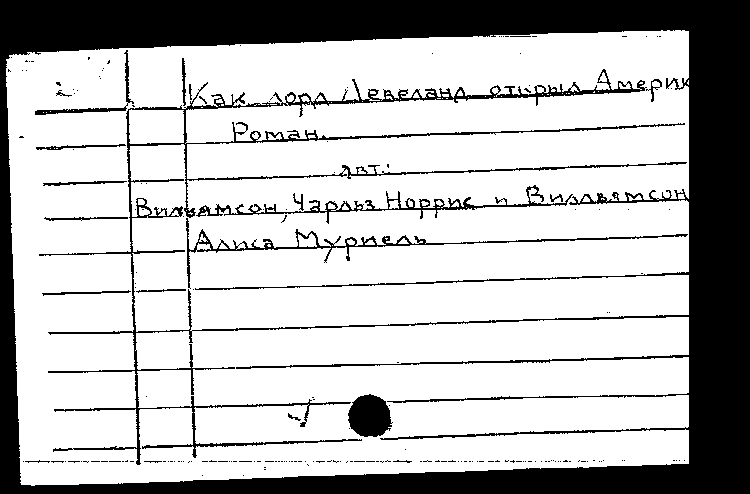 Как лорд Левеланд открыл Америк
Роман.
авт.:
Вильямсон, Чарльз Норрис и Вилльямсон
Алиса Муриель